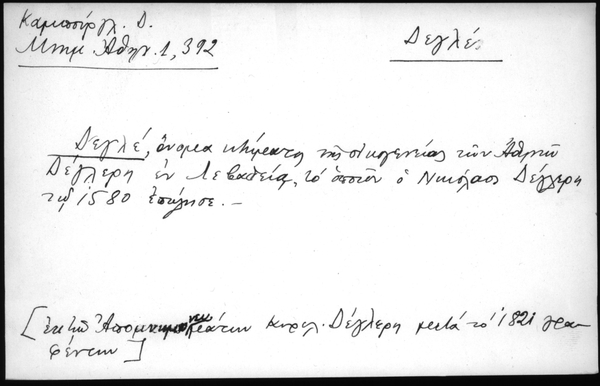 Καμπούργλ. Δ.
Μνημ. Αθην. 1, 392
Δεγλέ
Δεγλέ, ὄνομα κτήματος τῆς οἰκογενείας τῶν Ἀθηνῶν
Δέγλερη ἐν Λεβαδείᾳ, τὸ ὁποῖον ὁ Νικόλαος Δέγλερη
τῷ 1580 ἐπώλησε. —
[Ἐκ τῶν Ἀπομνημονευμάτων Κυρ. Δέγλερη μετὰ τὸ 1821 γρα-
φέντων]